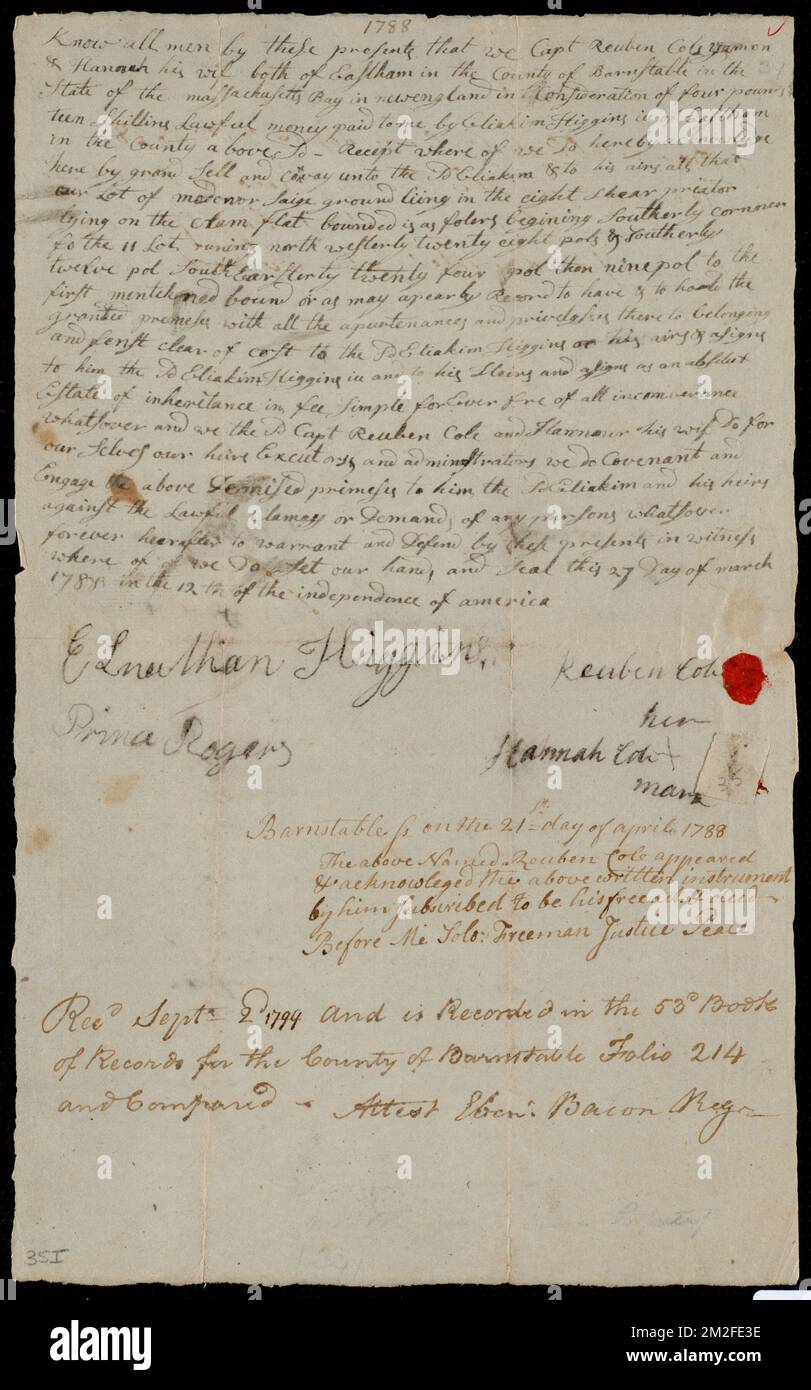 1788
Know all men by these presents that we Capt Reuben Cole yamen
& Hannah his wif both of Eastham in the County of Barnstable in the
State of the massachusetts Bay in newengland in Consideration of four poun
teen Shillins Lawful money paid to me by Eliakim Higgins of Eastham
in the County above Sd - Receipt where of we Do hereby
here by grand Sell and convay unto the Sd Eliakim & to his airs all that
our Lot of medow or Saige ground liing in the eight Shear
lying on the Clam flat bounded is as folers begining Southerly cornover
to the 11 Lot runing north westerly twenty eight pols & Southerly
twelve pol South Easterly twenty four pol then nine pol to the
first mentchened bound or as may apear by Record to have & to hoold the
granted premeses with all the apurtenances and privelgses there to belonging
and clear of cost to the Sd Eliakim Higgins or his airs & asigns
to him the Sd Eliakim Higgins and to his Heirs and asigns as an absolut
Estate of inheritance in fee Simple for Ever fre of all
whatsover and we the Sd Capt Reuben Cole and Hannour his wif Do for
our Selves our heirs Executors and adminstrators we do Covenant and
Engage the above Demised premeses to him the Sd Eliakim and his heirs
against the Lawful Clames or Demands of any parsons whatsover
forever hearafter to warrant and Defend by these presents in witness
where of we Do Set our hands and Seal this 27 Day of march
1788 in the 12th of the independence of america
Elnathan Higgins
Reuben Cole
her
Prince Rogers
Hannah Cole X
mark
Barnstable Ss on the 21st day of april 1788
The above Named Reuben Cole appeared
& acknowleged the above written instrument
by him Subscribed to be his free act & deed
Before Me Solo: Freeman Justice Peace
Recd Septr 2d 1794 and is Recorded in the 53d Book
of Records for the County of Barnstable Folio 214
and Compared - Attest Ebenr: Bacon Regr
35I
alamy
Image ID: 2M2FE3E
www.alamy.com